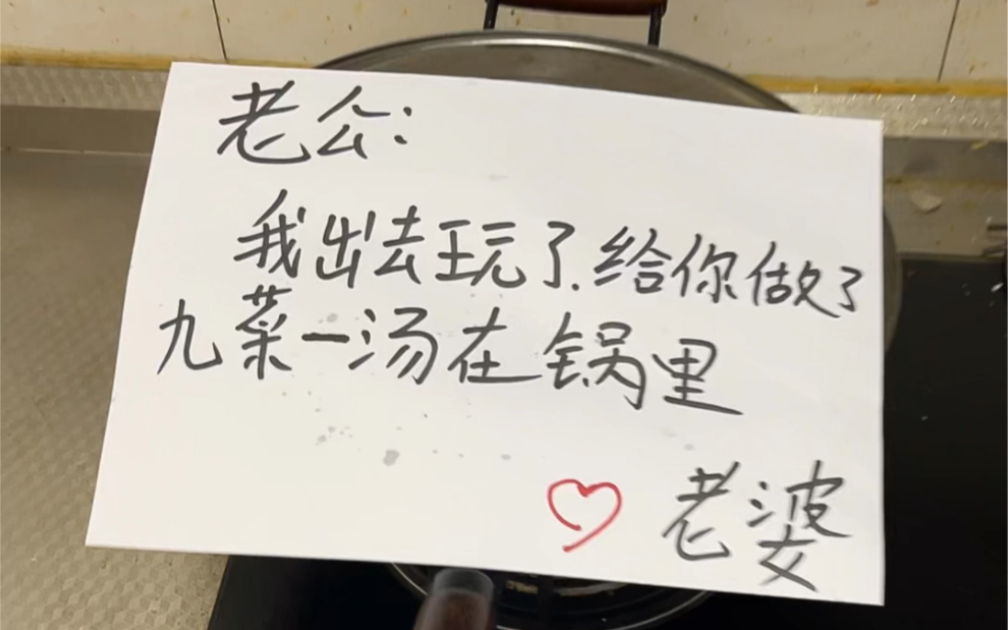 老公:
我出去玩了.给你做了
九菜一汤在锅里
老婆